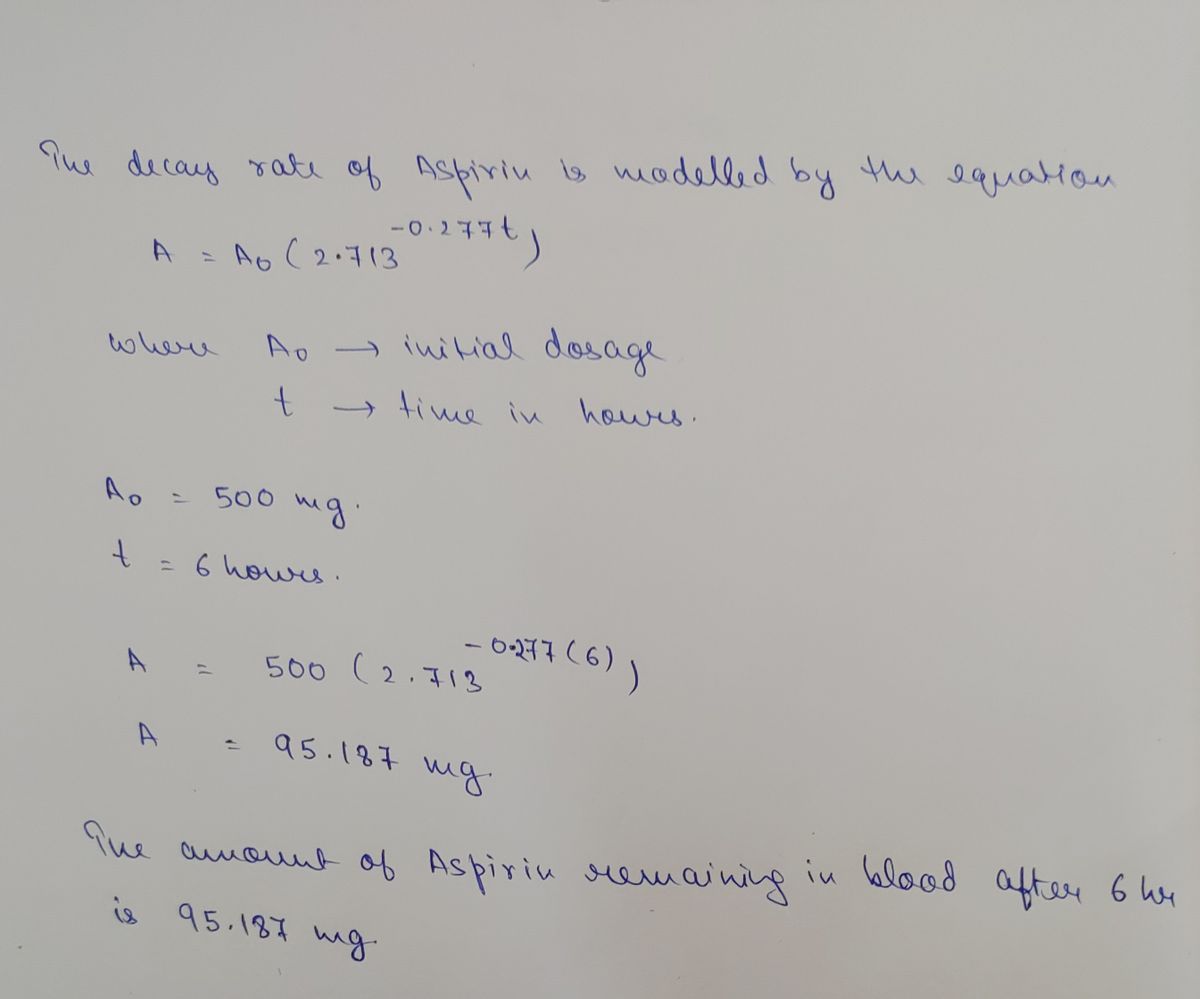 The decay rate of Aspirin is modelled by the equation
A = A₀ (2.713^-0.277t)
where A₀ → initial dosage
t → time in hours.
A₀ = 500 mg.
t = 6 hours.
A = 500 (2.713^-0.277(6))
A = 95.187 mg.
The amount of Aspirin remaining in blood after 6 hr
is 95.187 mg